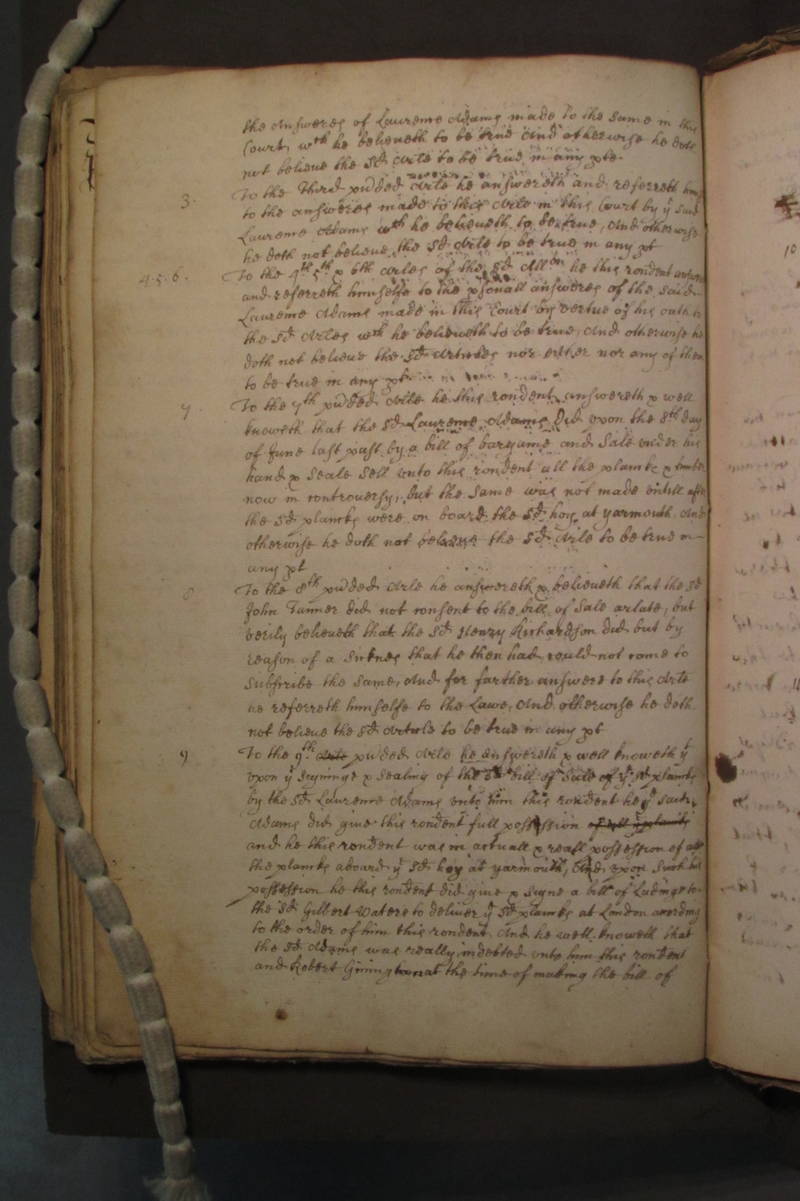 the Answeres of Laurence Adams made to the same in this
Court, wch he believeth to be true And otherwise he doth
not believe the sd Arle to be true in any pte.
3. To the Third prded Arle he answereth and referreth him
to the answeres made to this Arle in this Court by ye said
Laurence Adams wch he believeth to be true, And otherwise
he doth not believe the sd Arle to be true in any pt
4. 5. 6. To the 4th 5th & 6th arles of the sd Allon he this rondent answereth
and referreth himselfe to the psonall answeres of the said
Laurence Adams made in this Court by vertue of his oath to
the sd Arles wch he believeth to be true, And otherwise he
doth not believe the sd Articles nor either nor any of them
to be true in any pt
7 To the 7th prded Arle he this rondent answereth & well
knoweth that the sd Laurence Adams Did upon the 8th day
of June last past by a bill of bargaine and Sale under his
hand & Seale sell unto this rondent all the planks & timber
now in controversy, but the same was not made untill after
the sd planks were on board the sd hoy at yarmouth. And
otherwise he doth not believe the sd Arle to be true in
any pt
8 To the 8th prded Arle he answereth & believeth that the sd
John Tanner did not consent to the bill of Sale arlate, but
verily believeth that the sd Henry Richardson did but by
reason of a sicknes that he then had could not come to
subscribe the same, And for farther answere to this Arle
he referreth himselfe to the Lawe, And otherwise he doth
not believe the sd Article to be true in any pt
9 To the 9th Arle prded Arle he answereth & well knoweth yt
upon ye signinge & sealing of the sd bill of Sale of ye sd planks
by the sd Laurence Adams unto him this rondent he ye said
Adams did give this rondent full possession of all ye planks
and he this rondent was in actuall & reall possession of all
the planks aboard ye sd hoy at yarmouth, And upon such his
possession he this rondent did give & signe a bill of Ladinge to
the sd Gilbert Waters to deliver ye sd planks at London according
to the order of him this rondent And he well knoweth that
the sd Adams was really indebted unto him this rondent
and Robert Gimingham at the time of making the bill of